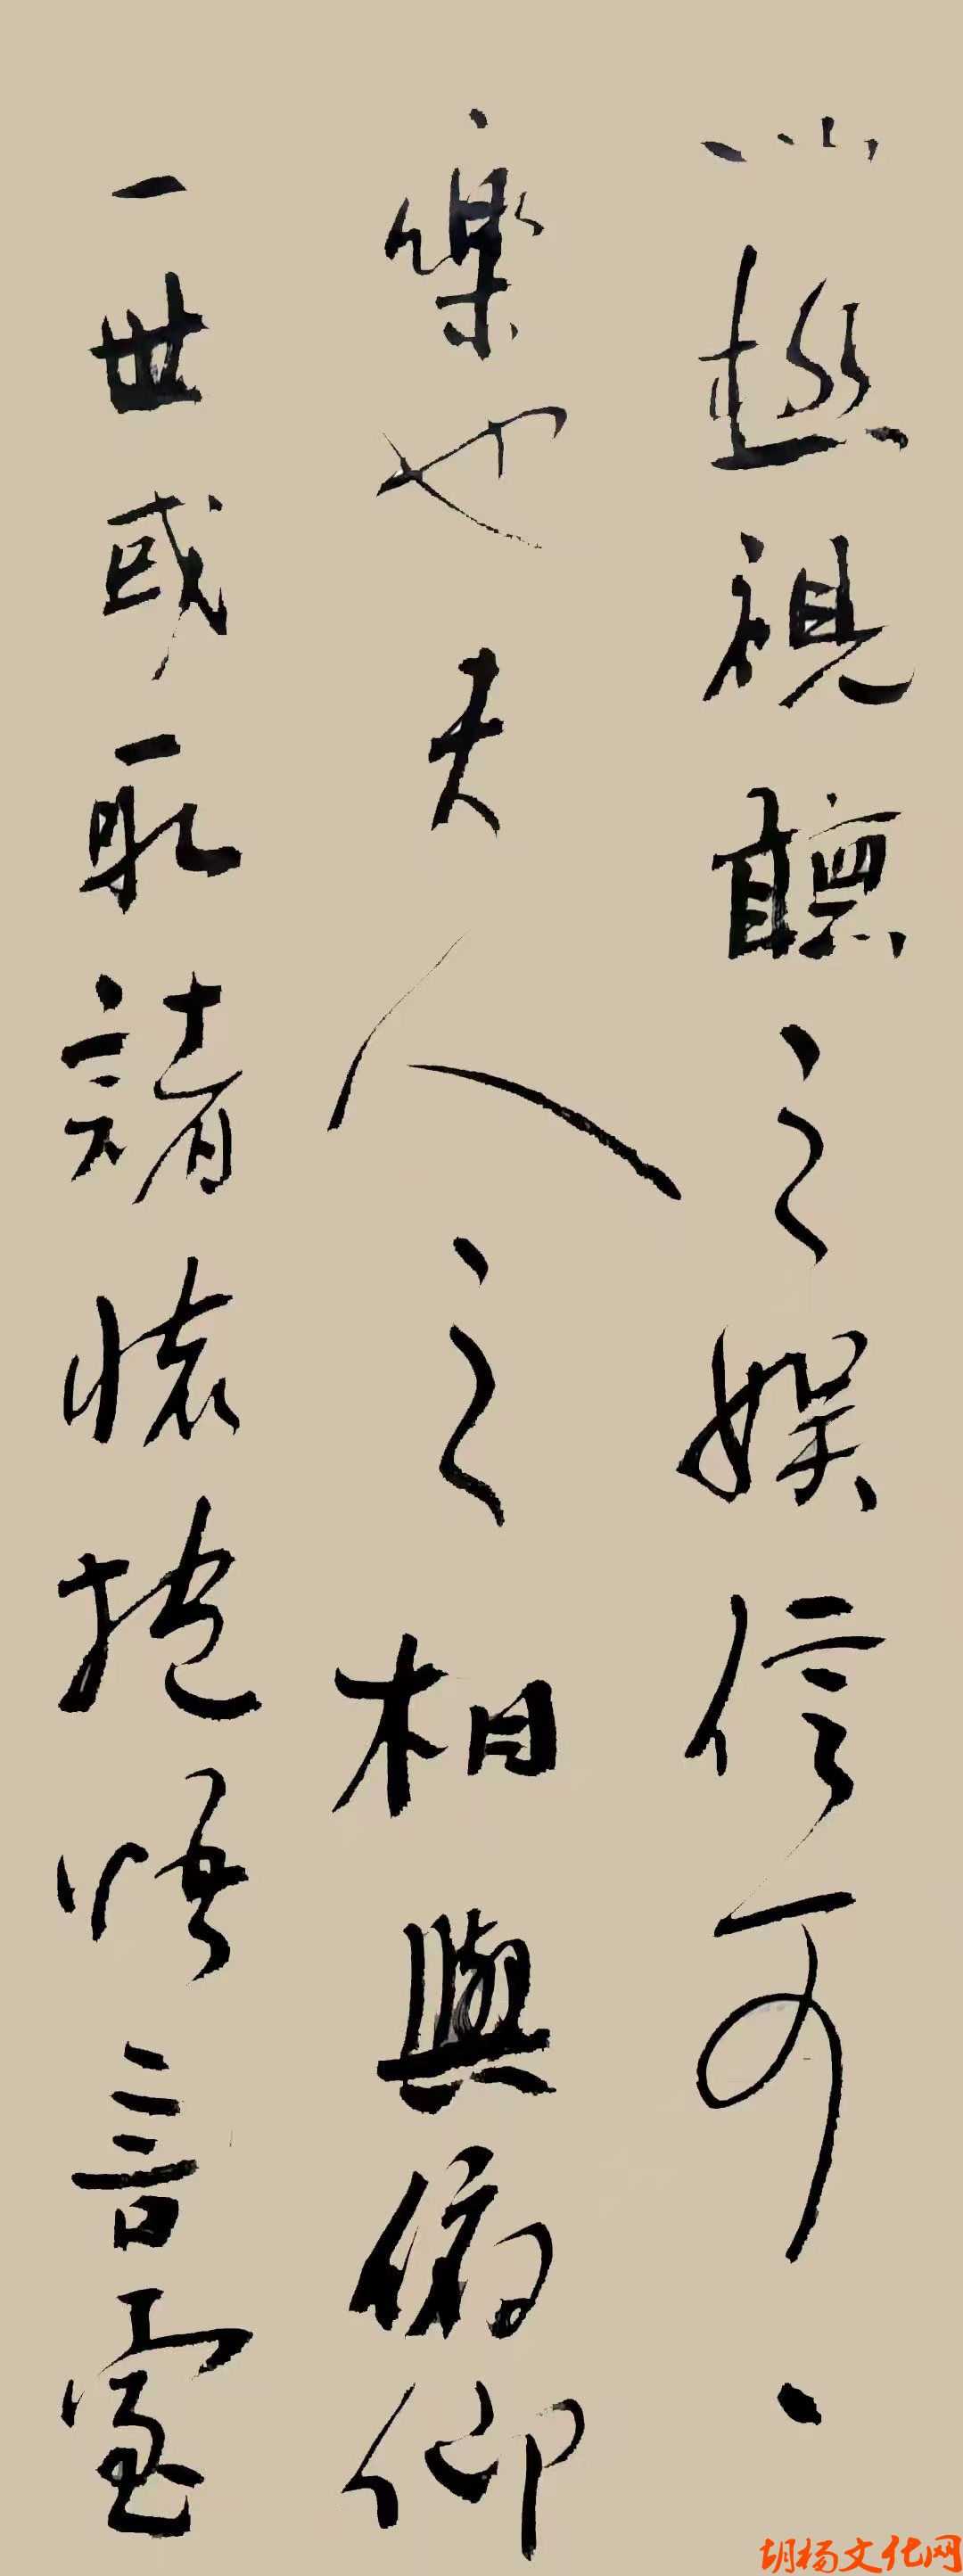 以極視聽之娛信可
樂也夫人之相與俯仰
一世或取諸懷抱悟言室
胡杨文化网